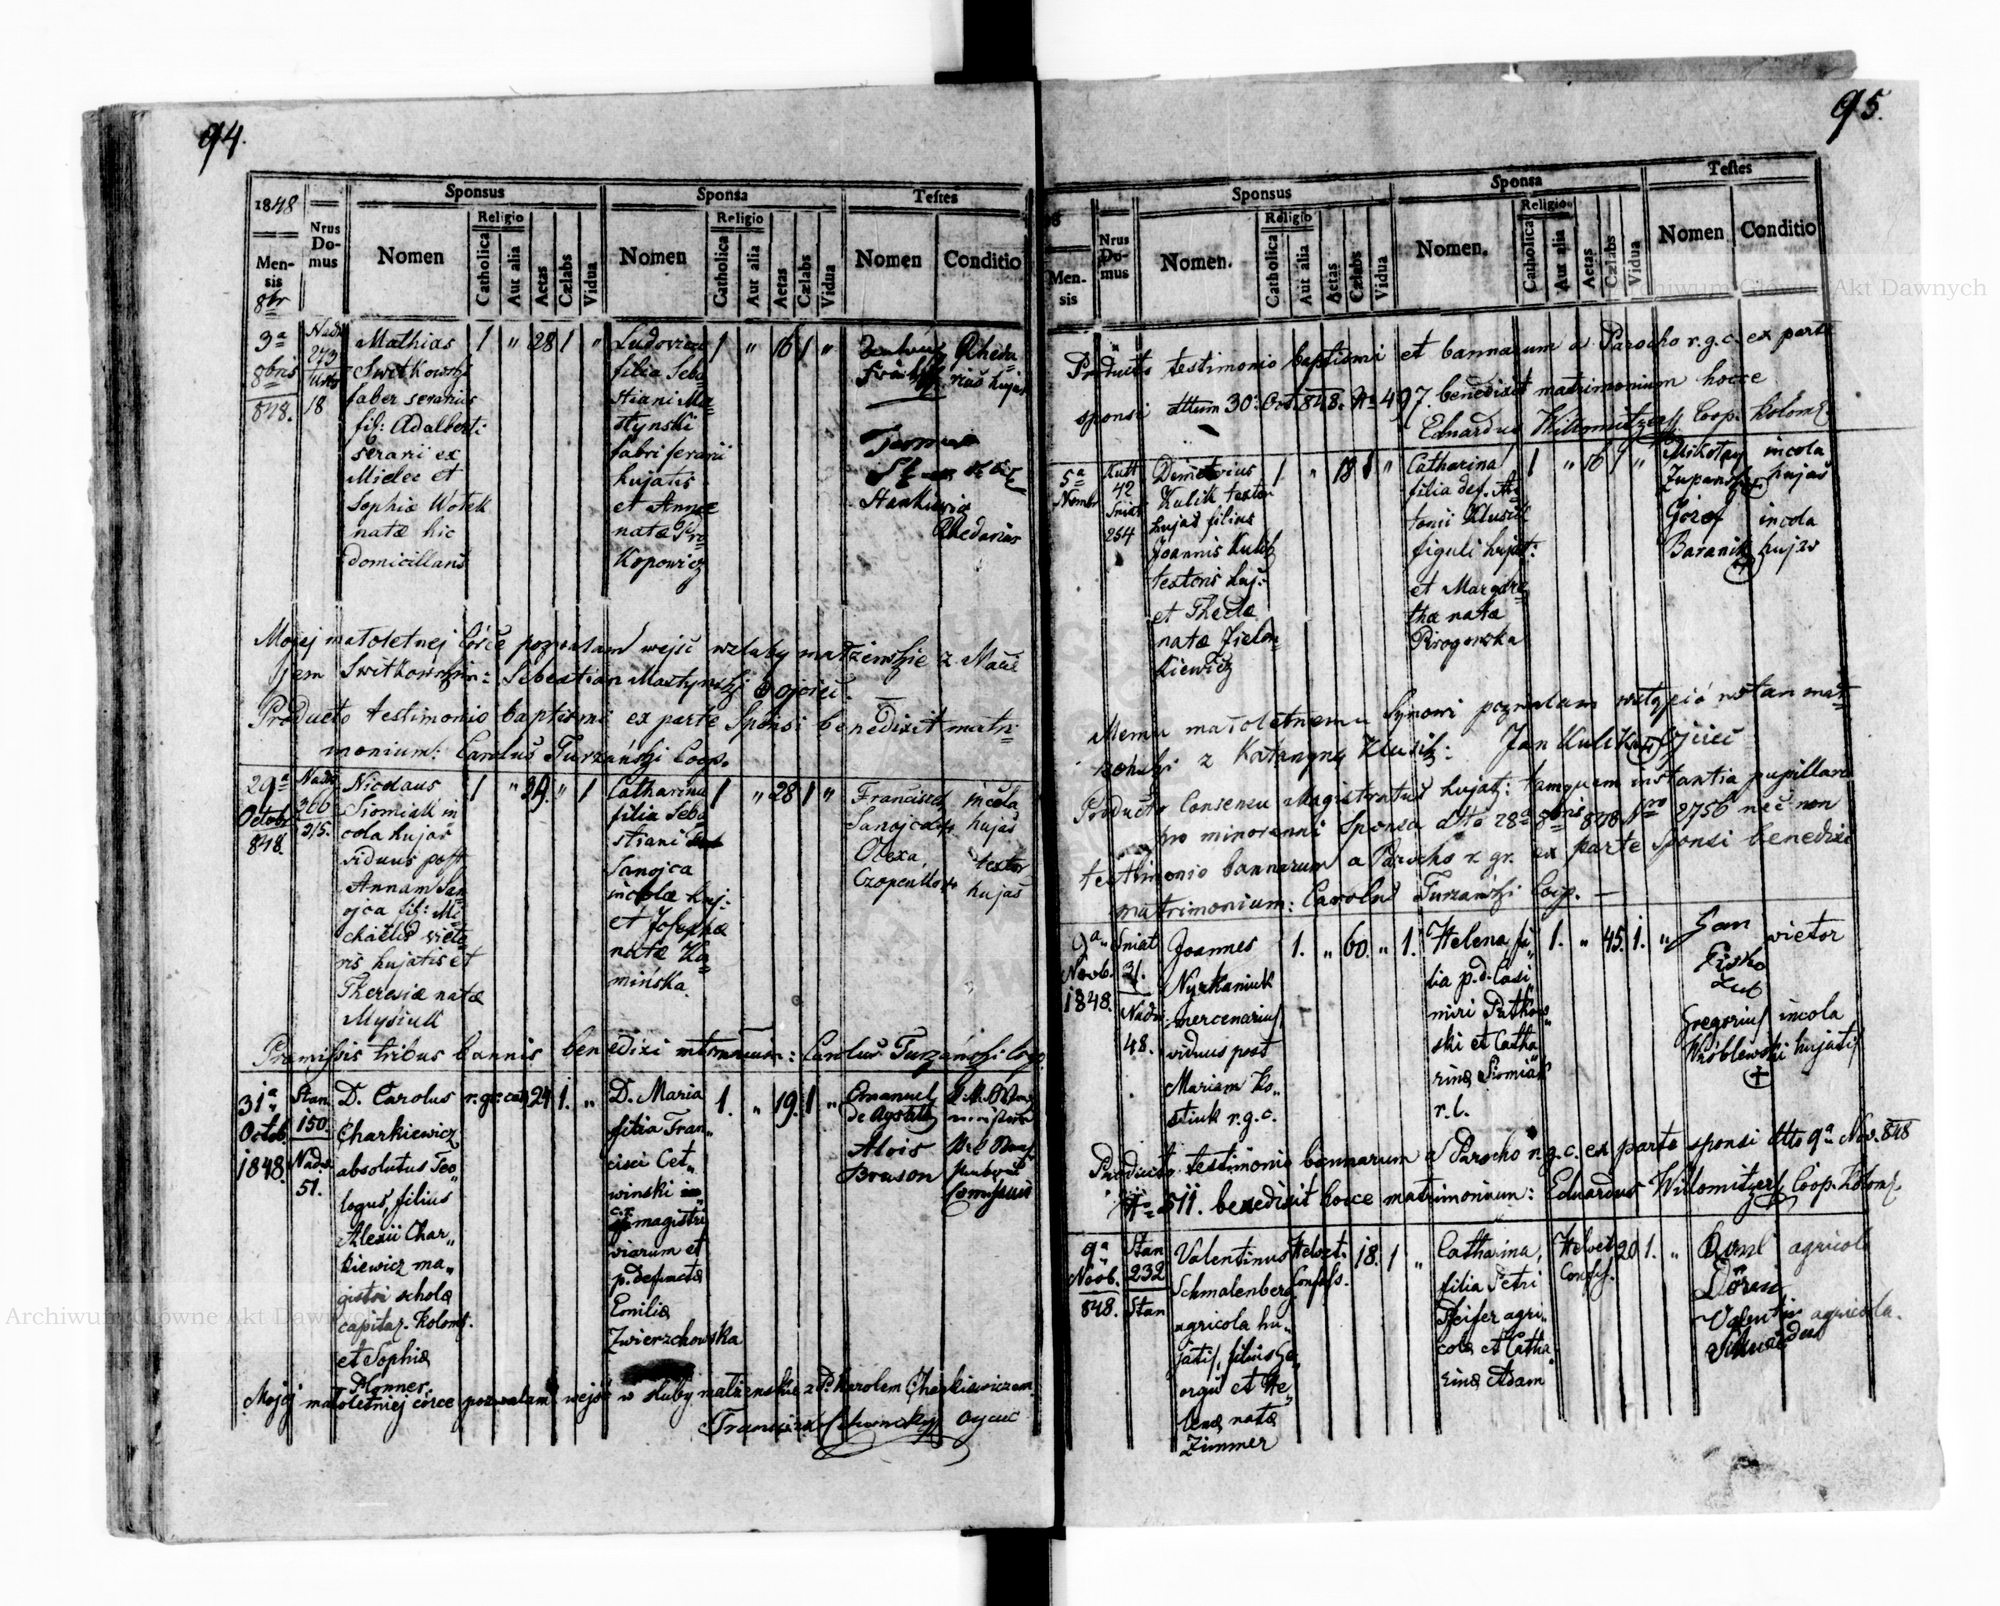 94.
1848
Mensis
8br
Nrus Domus
Sponsus
Nomen
Religio
Catholica
Aut alia
Aetas
Cælabs
Vidua
Sponsa
Nomen
Religio
Catholica
Aut alia
Aetas
Cælabs
Vidua
Testes
Nomen
Conditio
3a
8bris
848.
273
18
Mathias
Switkowski
faber
fil: Adalberti
ex
Mielec et
Sophiæ Wołek
natæ hic
domicilians
1 " 28 1 "
Ludovica
filia Seba
stiani Ma
stynski
fabri ferarii
hujatis
et Annæ
natæ Pro
kopowicz
1 " 16 1 "
Stankiewicz
Rhedarius
Mojej małoletnej Córce pozwalam wejść w śluby małżenskie z Maci
jem Switkowskim: Sebestian Mastynski ojciec
Producto testimonio baptismi ex parte Sponsi benedixit matri
monium: Carolus Turzański Coop.
29a
Octobr
848.
366
315.
Nicolaus
Siomiak in
cola hujas
viduus post
Annam San
ojca fil: Mi
chaelis vieto
ris hujatis et
Theresiæ natæ
Mysiuk
1 " 29. " 1
Catharina
filia Seba
stiani
Sanojca
incolæ huj:
et Josephæ
natæ Ka
mińska.
1 " 28 1 "
Francisca
Sanojca
Olexa
Czopenko
incola
hujas
textor
hujas
Præmissis tribus bannis benedixi matrimonium: Carolus Turzański Coop.
31a
Octob.
1848.
Stan.
150.
Nadw.
51.
D. Carolus
Charkiewicz
absolutus Teo„
logus, filius
Alexii Char„
kiewicz ma„
gistri scholæ
capital. Kolom.
et Sophiæ
Plonner
r. gr. cat. 24 1. "
D. Maria
filia Fran„
cisci Cet„
winski
c. r. magistri
viarum et
p. defunctæ
Emiliæ
Zwierzchowska
1. " 19. 1 "
Emanuel
Alois
Bouson
Mojej małoletniej córce pozwalam wejść w śluby małżenskie z P. Karolem Charkiewiczem
Franciszek Oyciec
95.
Mensis
Nrus Domus
Sponsus
Nomen.
Religio
Catholica
Aut alia
Aetas
Cælabs
Vidua
Sponsa
Nomen.
Religio
Catholica
Aut alia
Aetas
Cælabs
Vidua
Testes
Nomen
Conditio
Producto testimonio baptismi et bannarum a Parocho r. g. c. ex parte
sponsi dttum 30. Oct. 848. No 497. benedixit matrimonium hocce
Eduardus Willomitzer Coop. Kolom.
5a
Nvembr
Kutt
42
Sniat
254
Demetrius
Kulik textor
hujas filius
Joannis Kulik
textoris huj:
et Theclæ
natæ Zielon
kiewicz
1 " 18 1 "
Catharina
filia def. An
tonii Klusik
figuli hujat:
et Margare
thæ natæ
Pirogowska
1 " 16 1 "
Mikołay
Zupanski
incola
hujas
Gózef
Baranik
incola
hujas
Memu małoletnemu Synowi pozwalam wstąpić w stan mał
żenski z Katarzyną Klusik: Jan Kulik Ojciec
Producto Consensu Magistratus hujat: tamquam instantia pupillari
pro minorenni Sponsa dtto 28a 8bris 848 Nro 2756 nec non
testimonio bannarum a Parocho r. gr. ex parte Sponsi benedixi
matrimonium: Carolus Turzański Coop. —
9a„
Novb.
1848.
Sniat
31.
Nadw.
48.
Joannes
Nyrkaniuk
mercenarius
viduus post
Mariam Ko„
stiuk r. g. c.
1. " 60. " 1.
Helena fi„
lia p. d. Casi„
miri Putkow„
ski et Catha„
rinæ Siomiak
r. l.
1. " 45. 1. "
Gan
Fisko
vietor
Gregorius
Wróblewski
incola
hujatis
Producto testimonio bannarum a Parocho r. g. c. ex parte sponsi dtto 9a Nov. 848
No 511. benedixit hocce matrimonium: Eduardus Willomitzer Coop. Kolom.
9a
Novb.
848.
Stan
232
Stan
Valentinus
Schmalenberg
agricola hu„
jatis, filius Ge„
orgii et He„
lenæ natæ
Zimmer
Helvet. Confess. 18. 1 "
Catharina,
filia Petri
Pfeifer agri„
colæ et Catha„
rinæ Adam
Helvet. Confess. 20 1. "
agricola
Valentin
agricola.
Archiwum Główne Akt Dawnych
Archiwum Główne Akt Dawnych